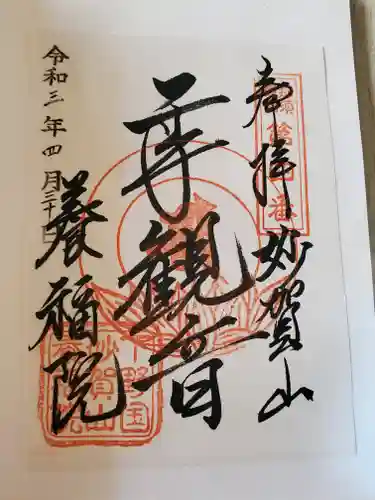 奉拝 妙賀山
千手観音
令和三年四月三十日
養福院
下野国
妙賀山
養福院